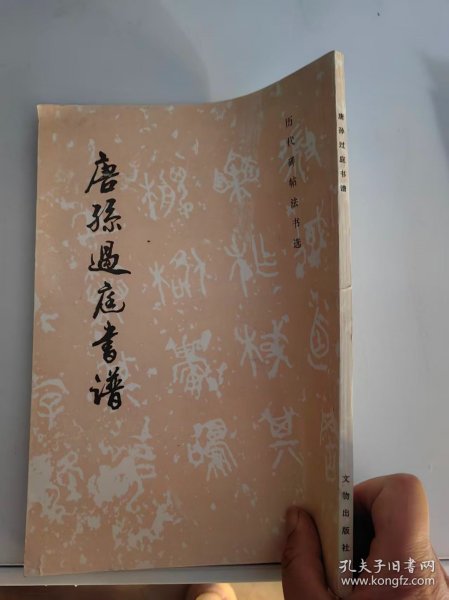 唐孫過庭書谱
历代碑帖法书选
唐孙过庭书谱
文物出版社
孔夫子旧书网
www.kongfz.com